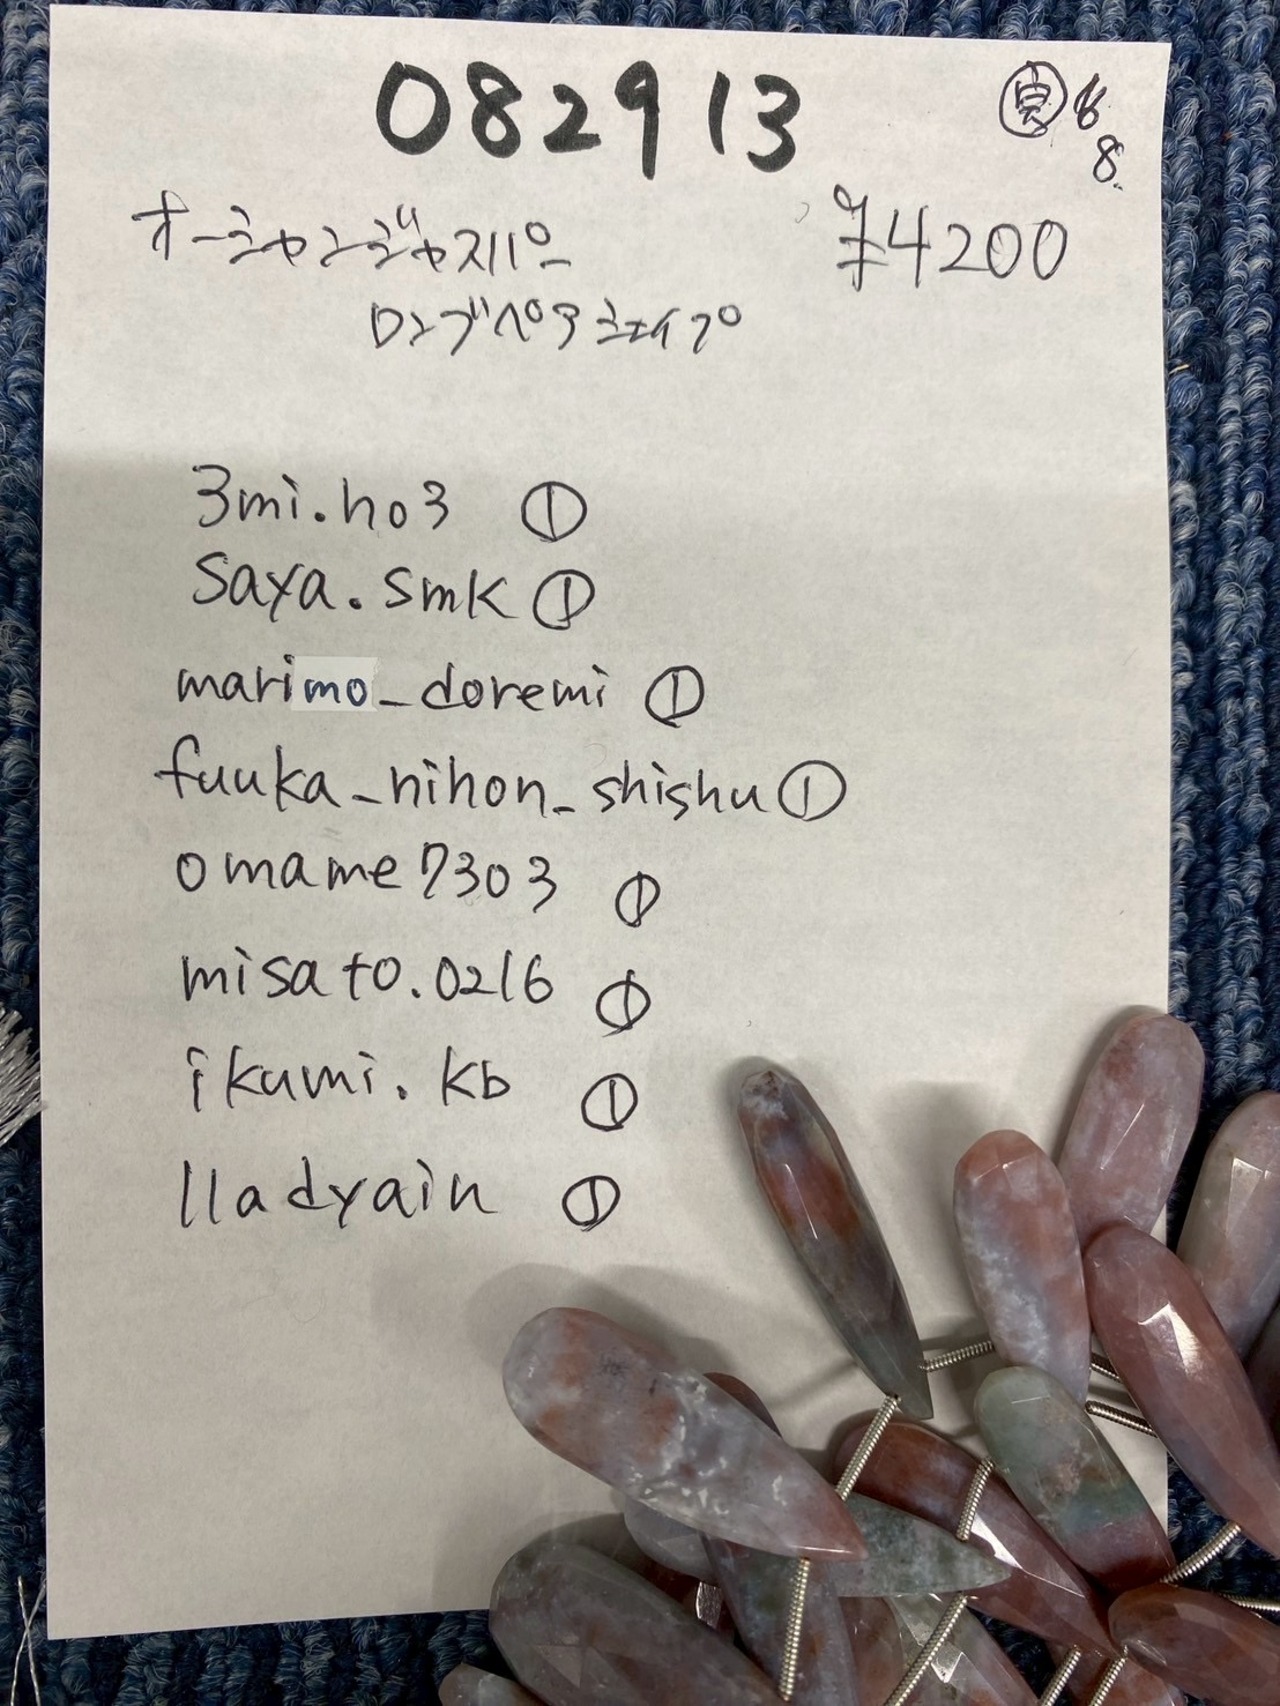 082913
貞 16
8.
オーシャンジャスパー ¥4200
ロングペアシェイプ
3mi.ho3 ①
saya.smk ①
marimo_doremi ①
fuuka_nihon_shishu ①
omame7303 ①
misato.0216 ①
ikumi.kb ①
lladyain ①